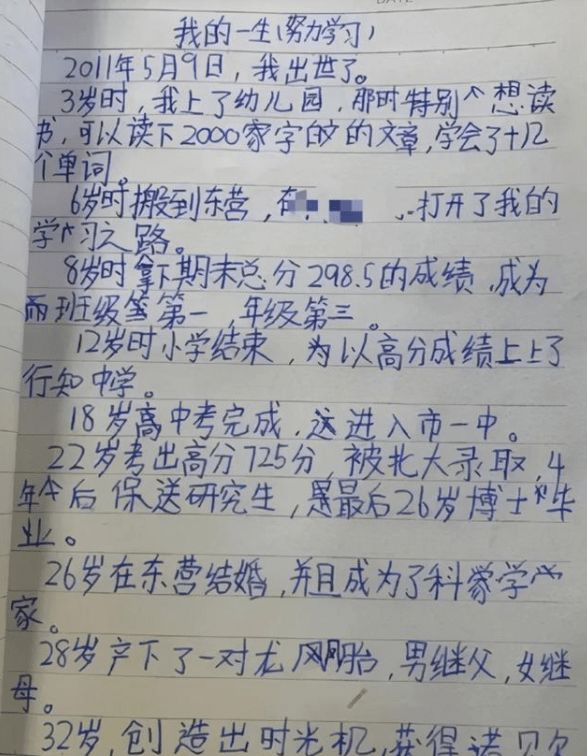 我的一生(努力学习)
2011年5月9日，我出世了。
3岁时，我上了幼儿园，那时特别个想读
书，可以读下2000家字的的文章，学会了十几
个单词。
6岁时搬到东营，在 打开了我的
学习之路。
8岁时拿下期末总分298.5的成绩，成为
班级第一，年级第三。
12岁时小学结束，为以高分成绩上上了
行知中学。
18岁高中考完成，这进入市一中。
22岁考出高分725分，被北大录取，4
年后保送研究生，最后26岁博士毕
业。
26岁在东营结婚，并且成为了科家学
家。
28岁产下了一对龙凤胎，男继父，女继
母。
32岁，创造出时光机，获得诺贝尔